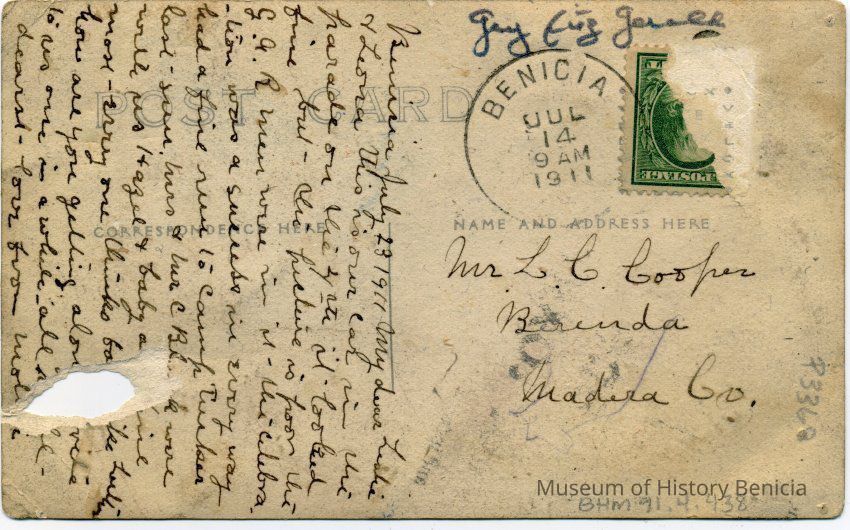 Guy Fitz Gerald
BENICIA
JUL
14
9 AM
1911
POSTAGE
POST CARD
CORRESPONDENCE HERE
NAME AND ADDRESS HERE
Benicia July 23 1911 My dear
& Leona This is our car in the
parade on the 4th it looked
fine but the picture is poor the
G.A.R men were in it - the celebra
-tion was a success in every way
had a fine run to Camp
last - Mrs & Mr C were
with us Hazel & baby
most - every one thinks
how are you getting along
to us once in a while all
dearest - love from
Mr. L. C. Cooper
Berenda
Madera Co.
P3368
Museum of History Benicia
BHM 91.4.938